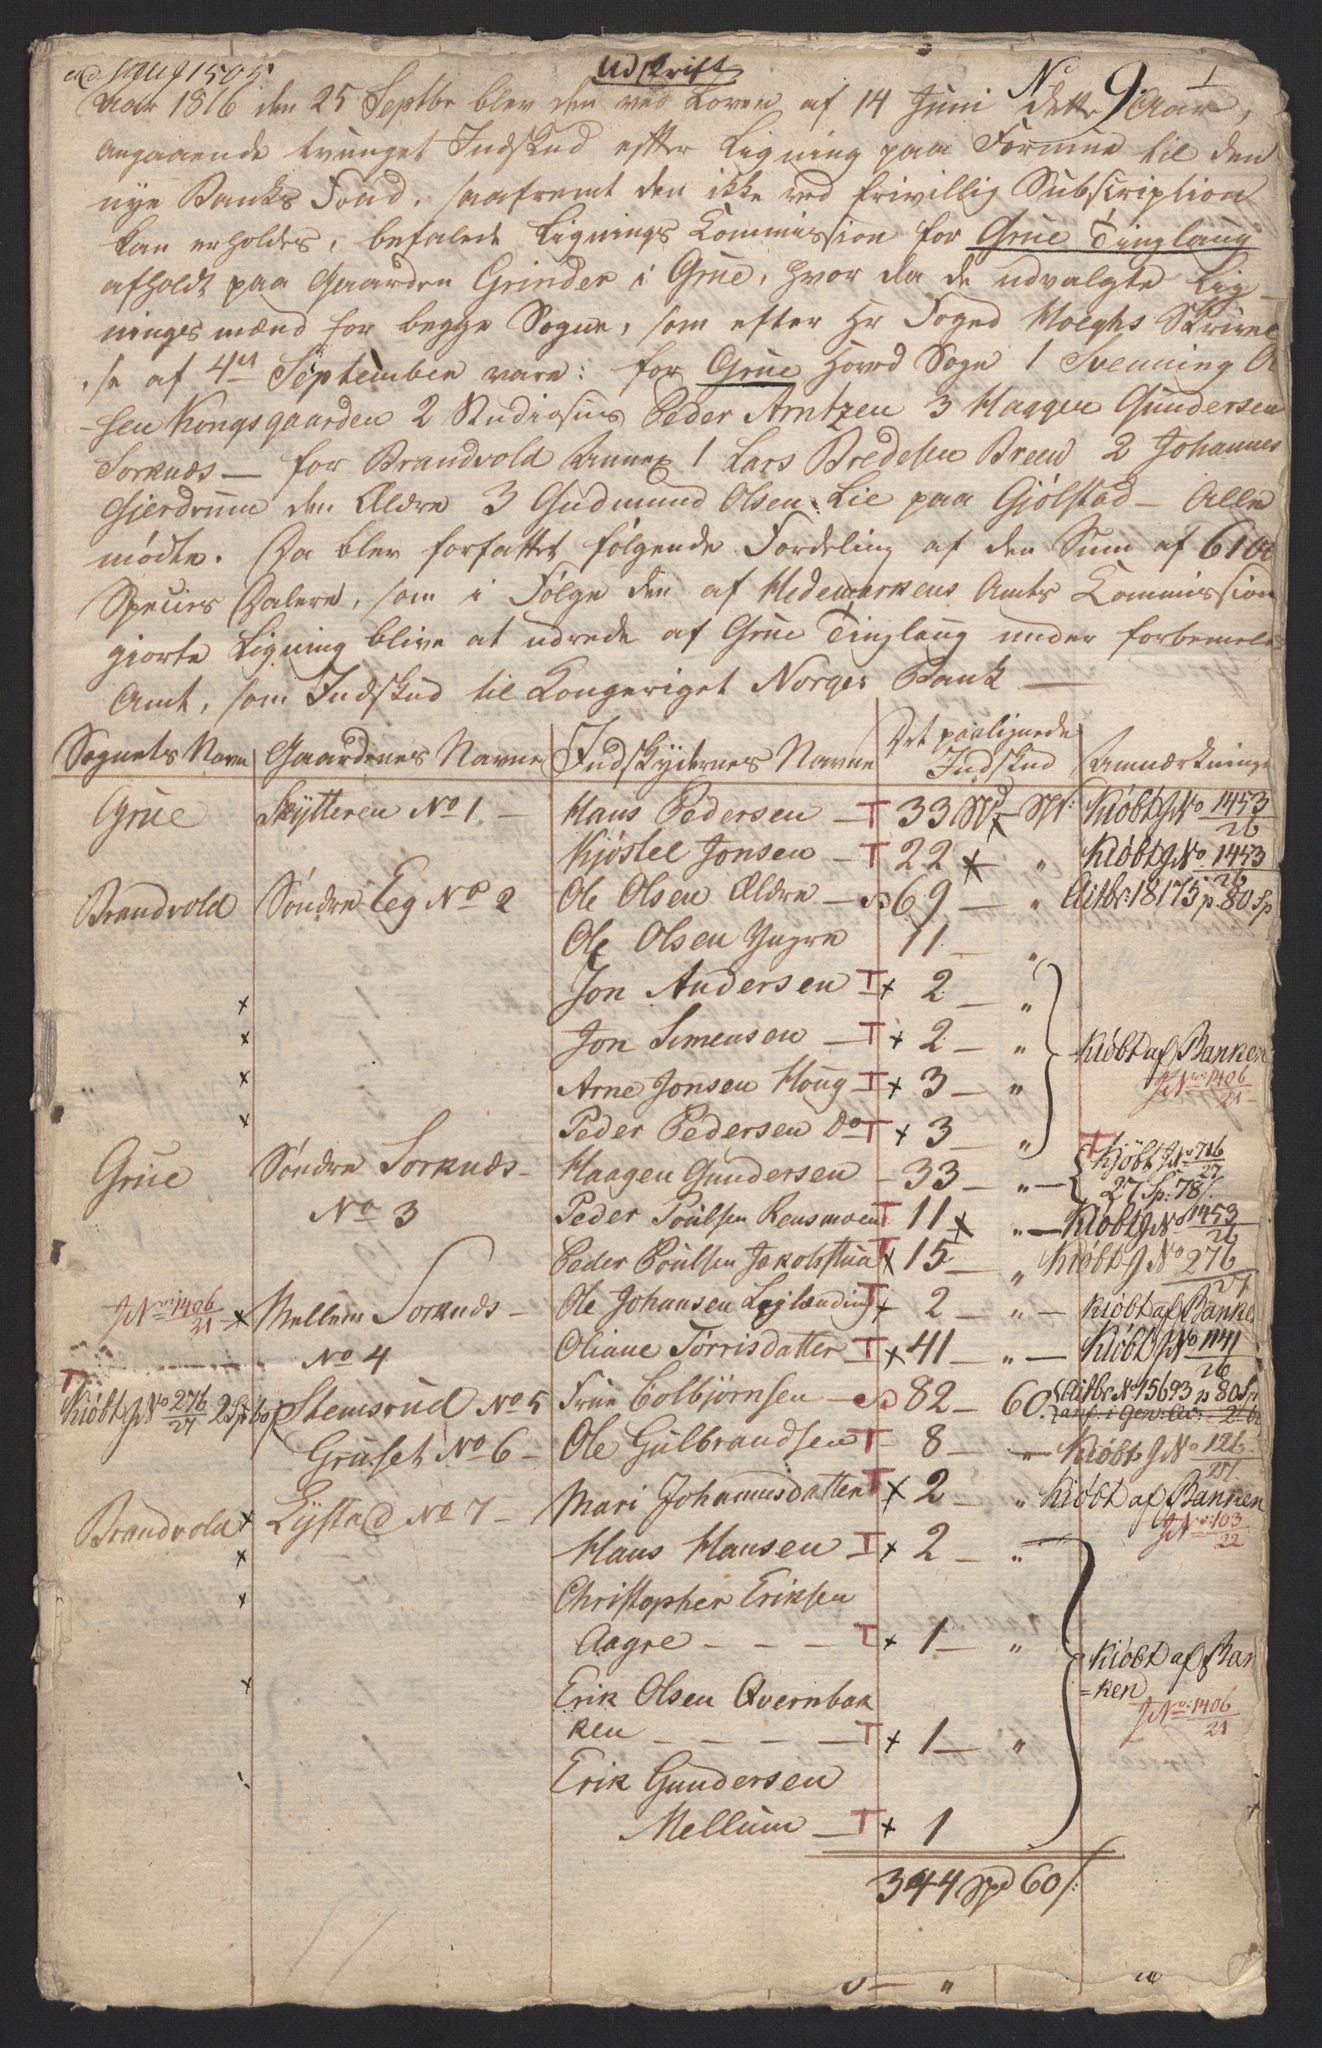 Udskrift
No 9 1
Aar 1816 den 25 Septbr blev den ved Loven af 14 Juni dette Aar,
angaaende tvunget Indskud efter Ligning paa Formue til den
nye Banks Fond, saafremt den ikke ved frivillig Subscription
kan erholdes, befalede Lignings Commission for Grue Tinglaug
afholdt paa Gaarden Grinder i Grue, hvor da de udvalgte Lig
nings mænd for begge Sogne, som efter Hr Foged Moeghs Skrivel
se af 4de September vare: for Grue Hoved Sogn 1 Svenning Ol
sen Kongsgaarden 2 Studiosus Peder Arntzen 3 Haagen Gundersen
Sorknæs — for Brandvold Annex 1 Lars Bredesen Breen 2 Johannes
Gjerdrum den Ældre 3 Gudmund Olsen Lie paa Gjølstad — Alle
mødte. Da blev forfattet følgende Fordeling af den Sum af
Species Dalere, som i Følge den af Hedemarkens Amts Commission
gjorte Ligning blive at udrede af Grue Tinglaug under forbemel
Amt, som Indskud til Kongeriget Norges Bank —
Sognets Navn Gaardenes Navne Indskydernes Navne Det paalignede Indskud Anmærkninge
Grue Skÿtteren No 1. — Hans Pedersen — T 33 Spd — Sk: Kiøbt J No 1453/26
Kjöstel Jonsen — T 22 x — " Kiøbt J No 1453/26
Brandvold Søndre Eeg No 2 Ole Olsen Ældre — 69 — " Actbr: 18175 p. 80 Sp
Ole Olsen Yngre 11 — "
x Jon Andersen T x 2 — "
x Jon Simensen — T x 2 — " Kiøbt af Banken
x Arne Jonsen Houg T x 3 — " J No 1406/21
x Peder Pedersen Do T x 3 — "
Grue Søndre Sorknæs — Haagen Gundersen — 33 — " — T Kjöbt J No 716/27
No 3 27 Sp: 78 s.
Peder Poulsen Rensmoen T 11 x " — Kiøbt J No 1453/26
Peder Poulsen Jakobstua T x 15 — " Kiøbt J No 276/27
J No 1406/21 x Mellem Sorknæs — Ole Johansen Leglænding T x 2 — " — Kiøbt af Banken
No 4 Oliane Torrisdatter T x 41 — " — Kiøbt J No 1141/26
T Kiøbt J No 276/27 2 Sp 60 s Stemsrud No 5 Frue Colbjørnsen — 82 — 60. Actbr No 15693 p 80 Sp
Gruset No 6 — Ole Gulbrandsen T — 8 — " Kiøbt J No 126/27
Brandvold x Lystad No 7 — Mari Johannesdatter T x 2 — " Kiøbt af Banken
J No 103/22
x Hans Hansen — T x 2 — "
x Christopher Eriksen
Aagre — — — T x 1 — "
Kiøbt af Ban
=ken
x Erik Olsen Qvernbak
J No 1406/21
ken — — — — T x 1 — "
Erik Gundersen
Mellum — T x 1
344 Spd 60 s: